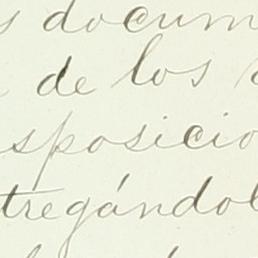 s docum
de los
sposicio
tregándol